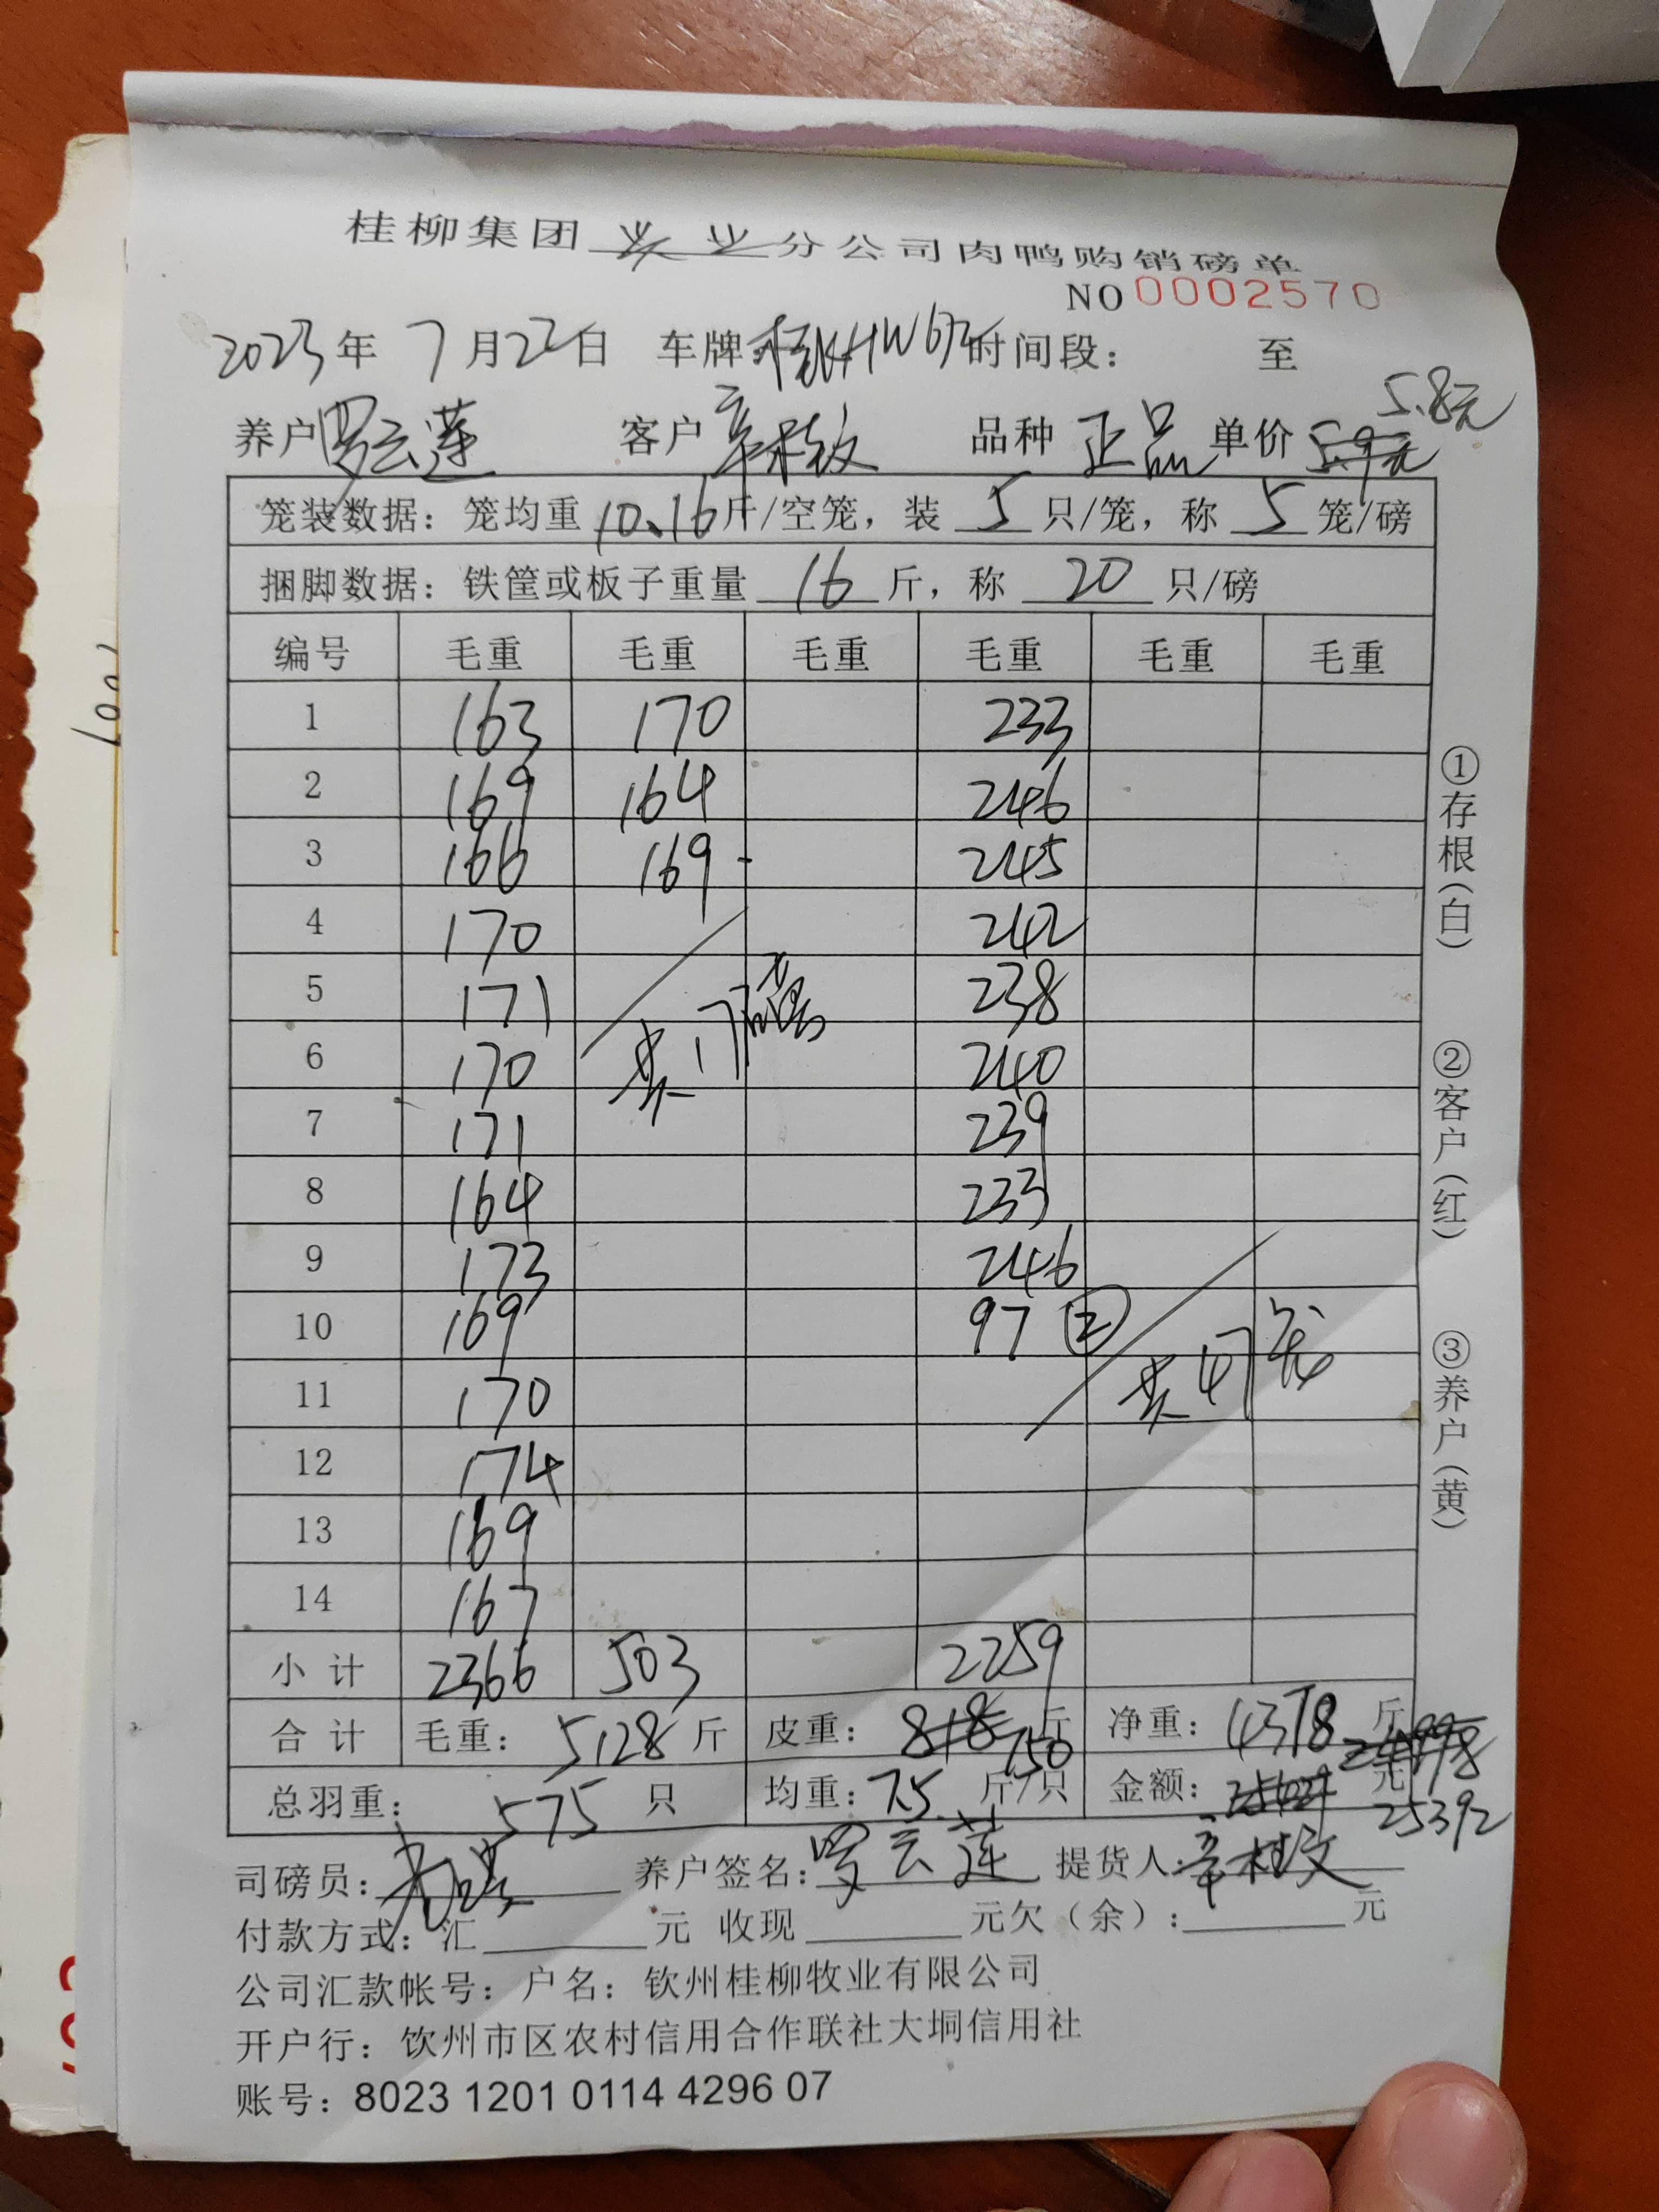 桂柳集团 分公司肉鸭购销磅单
NO 0002570
2023年 7月22日 车牌: 时间段: 至
5.8元
养户 罗云莲 客户 品种 正品 单价 5.9元
笼装数据: 笼均重 10.16 斤/空笼, 装 5 只/笼, 称 5 笼/磅
捆脚数据: 铁筐或板子重量 16 斤, 称 20 只/磅
编号 毛重 毛重 毛重 毛重 毛重 毛重
1 163 170 233
2 169 164 246
3 166 169 245
4 170 242
5 171 238
6 170 共17磅 240
7 171 239
8 164 233
9 173 246
10 169 97 ②
11 170 共47笼
12 174
13 169
14 167
小计 2366 503 2259
合计 毛重: 5128 斤 皮重: 818 750 斤 净重: 4378 斤
总羽重: 575 只 均重: 7.5 斤/只 金额: 元
25392
司磅员: 养户签名: 罗云莲 提货人:
付款方式: 汇 元 收现 元欠(余): 元
公司汇款帐号: 户名: 钦州桂柳牧业有限公司
开户行: 钦州市区农村信用合作联社大垌信用社
账号: 8023 1201 0114 4296 07
①存根(白)
②客户(红)
③养户(黄)